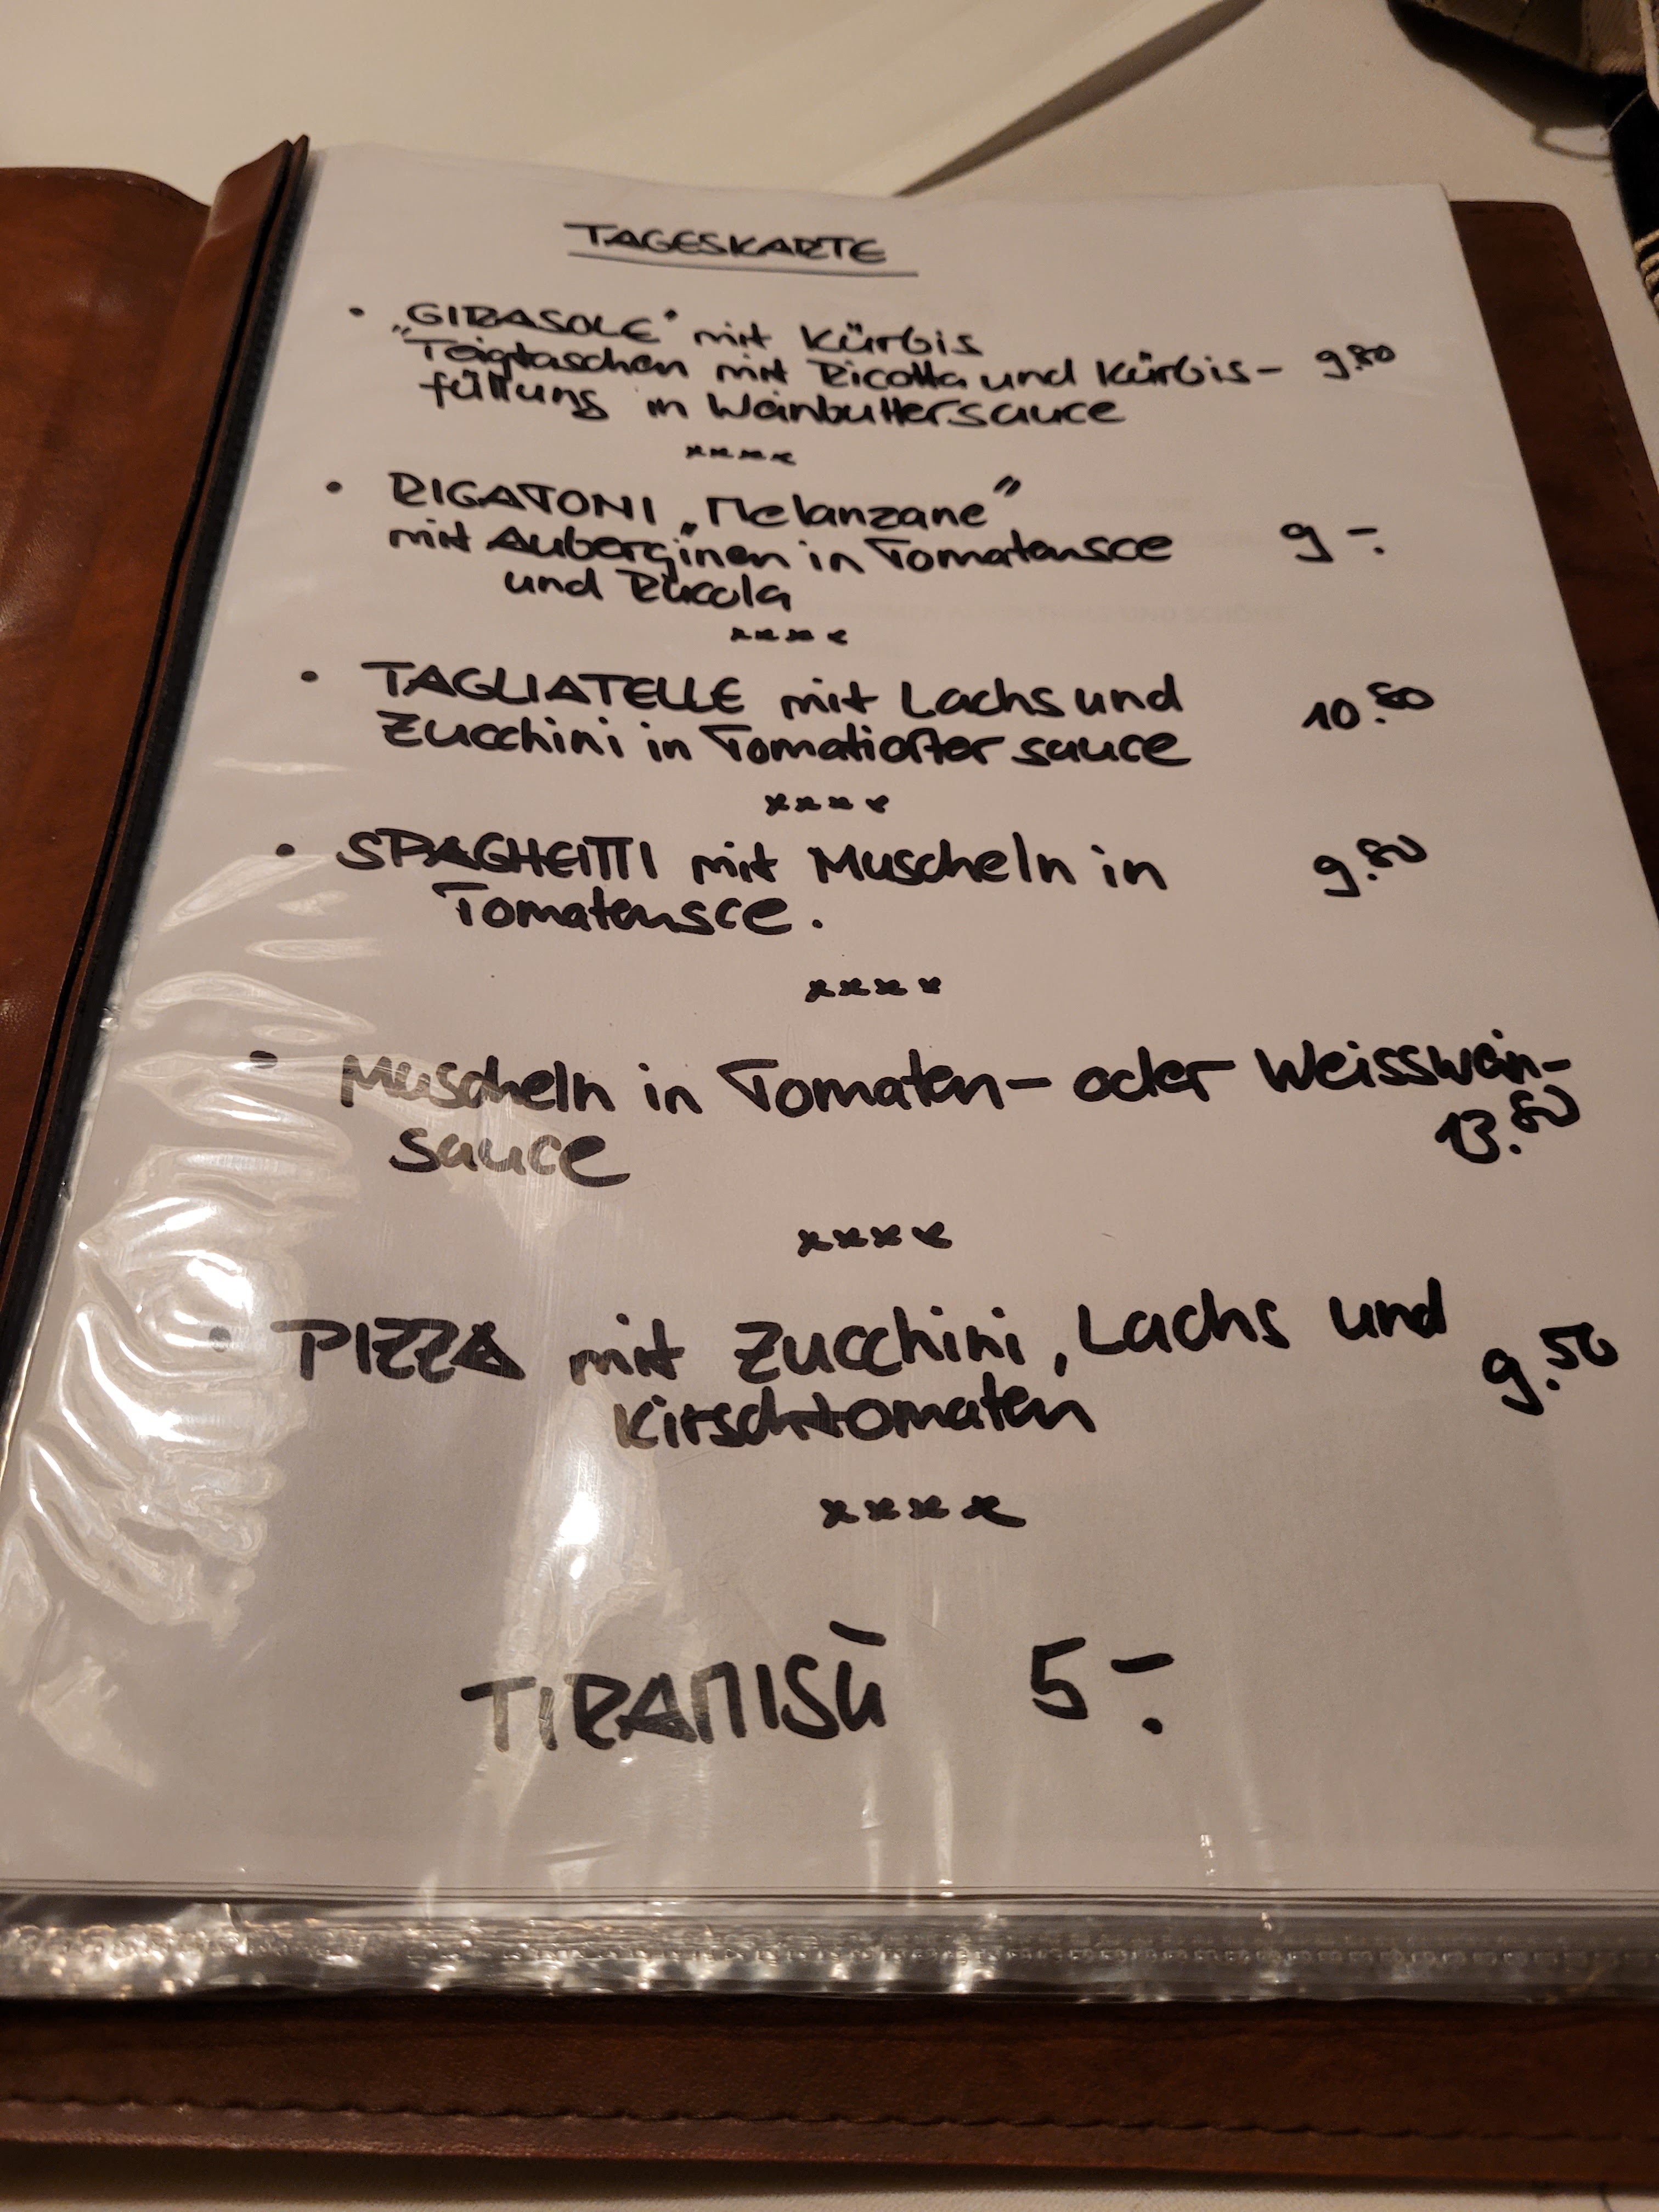 TAGESKARTE
• „GIRASOLE" mit Kürbis
Teigtaschen mit Ricotta und Kürbis- 9.80
füllung in Weinbuttersauce
xxxx
• RIGATONI „Melanzane"
mit Auberginen in Tomatensce 9-.
und Rucola
xxxx
• TAGLIATELLE mit Lachs und 10.80
Zucchini in sauce
xxxx
• SPAGHETTI mit Muscheln in 9.80
Tomatensce.
xxxx
• Muscheln in Tomaten- oder Weisswein-
sauce 13.80
xxxx
• PIZZA mit Zucchini, Lachs und 9.50
Kirschtomaten
xxxx
TIRAMISÙ 5-.